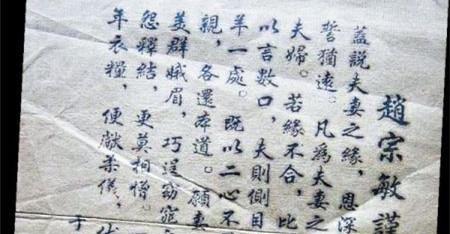 趙宗敏謹
蓋説夫妻之緣，恩深
誓猶遠。凡為夫妻之
夫婦。若緣不合，比
以言數口，夫則側目
羊一處。既以二心不
親，各還本道。願妻
美群娥眉，巧逞窈窕
怨釋結，更莫相憎。
年衣糧，便獻柔儀，
于